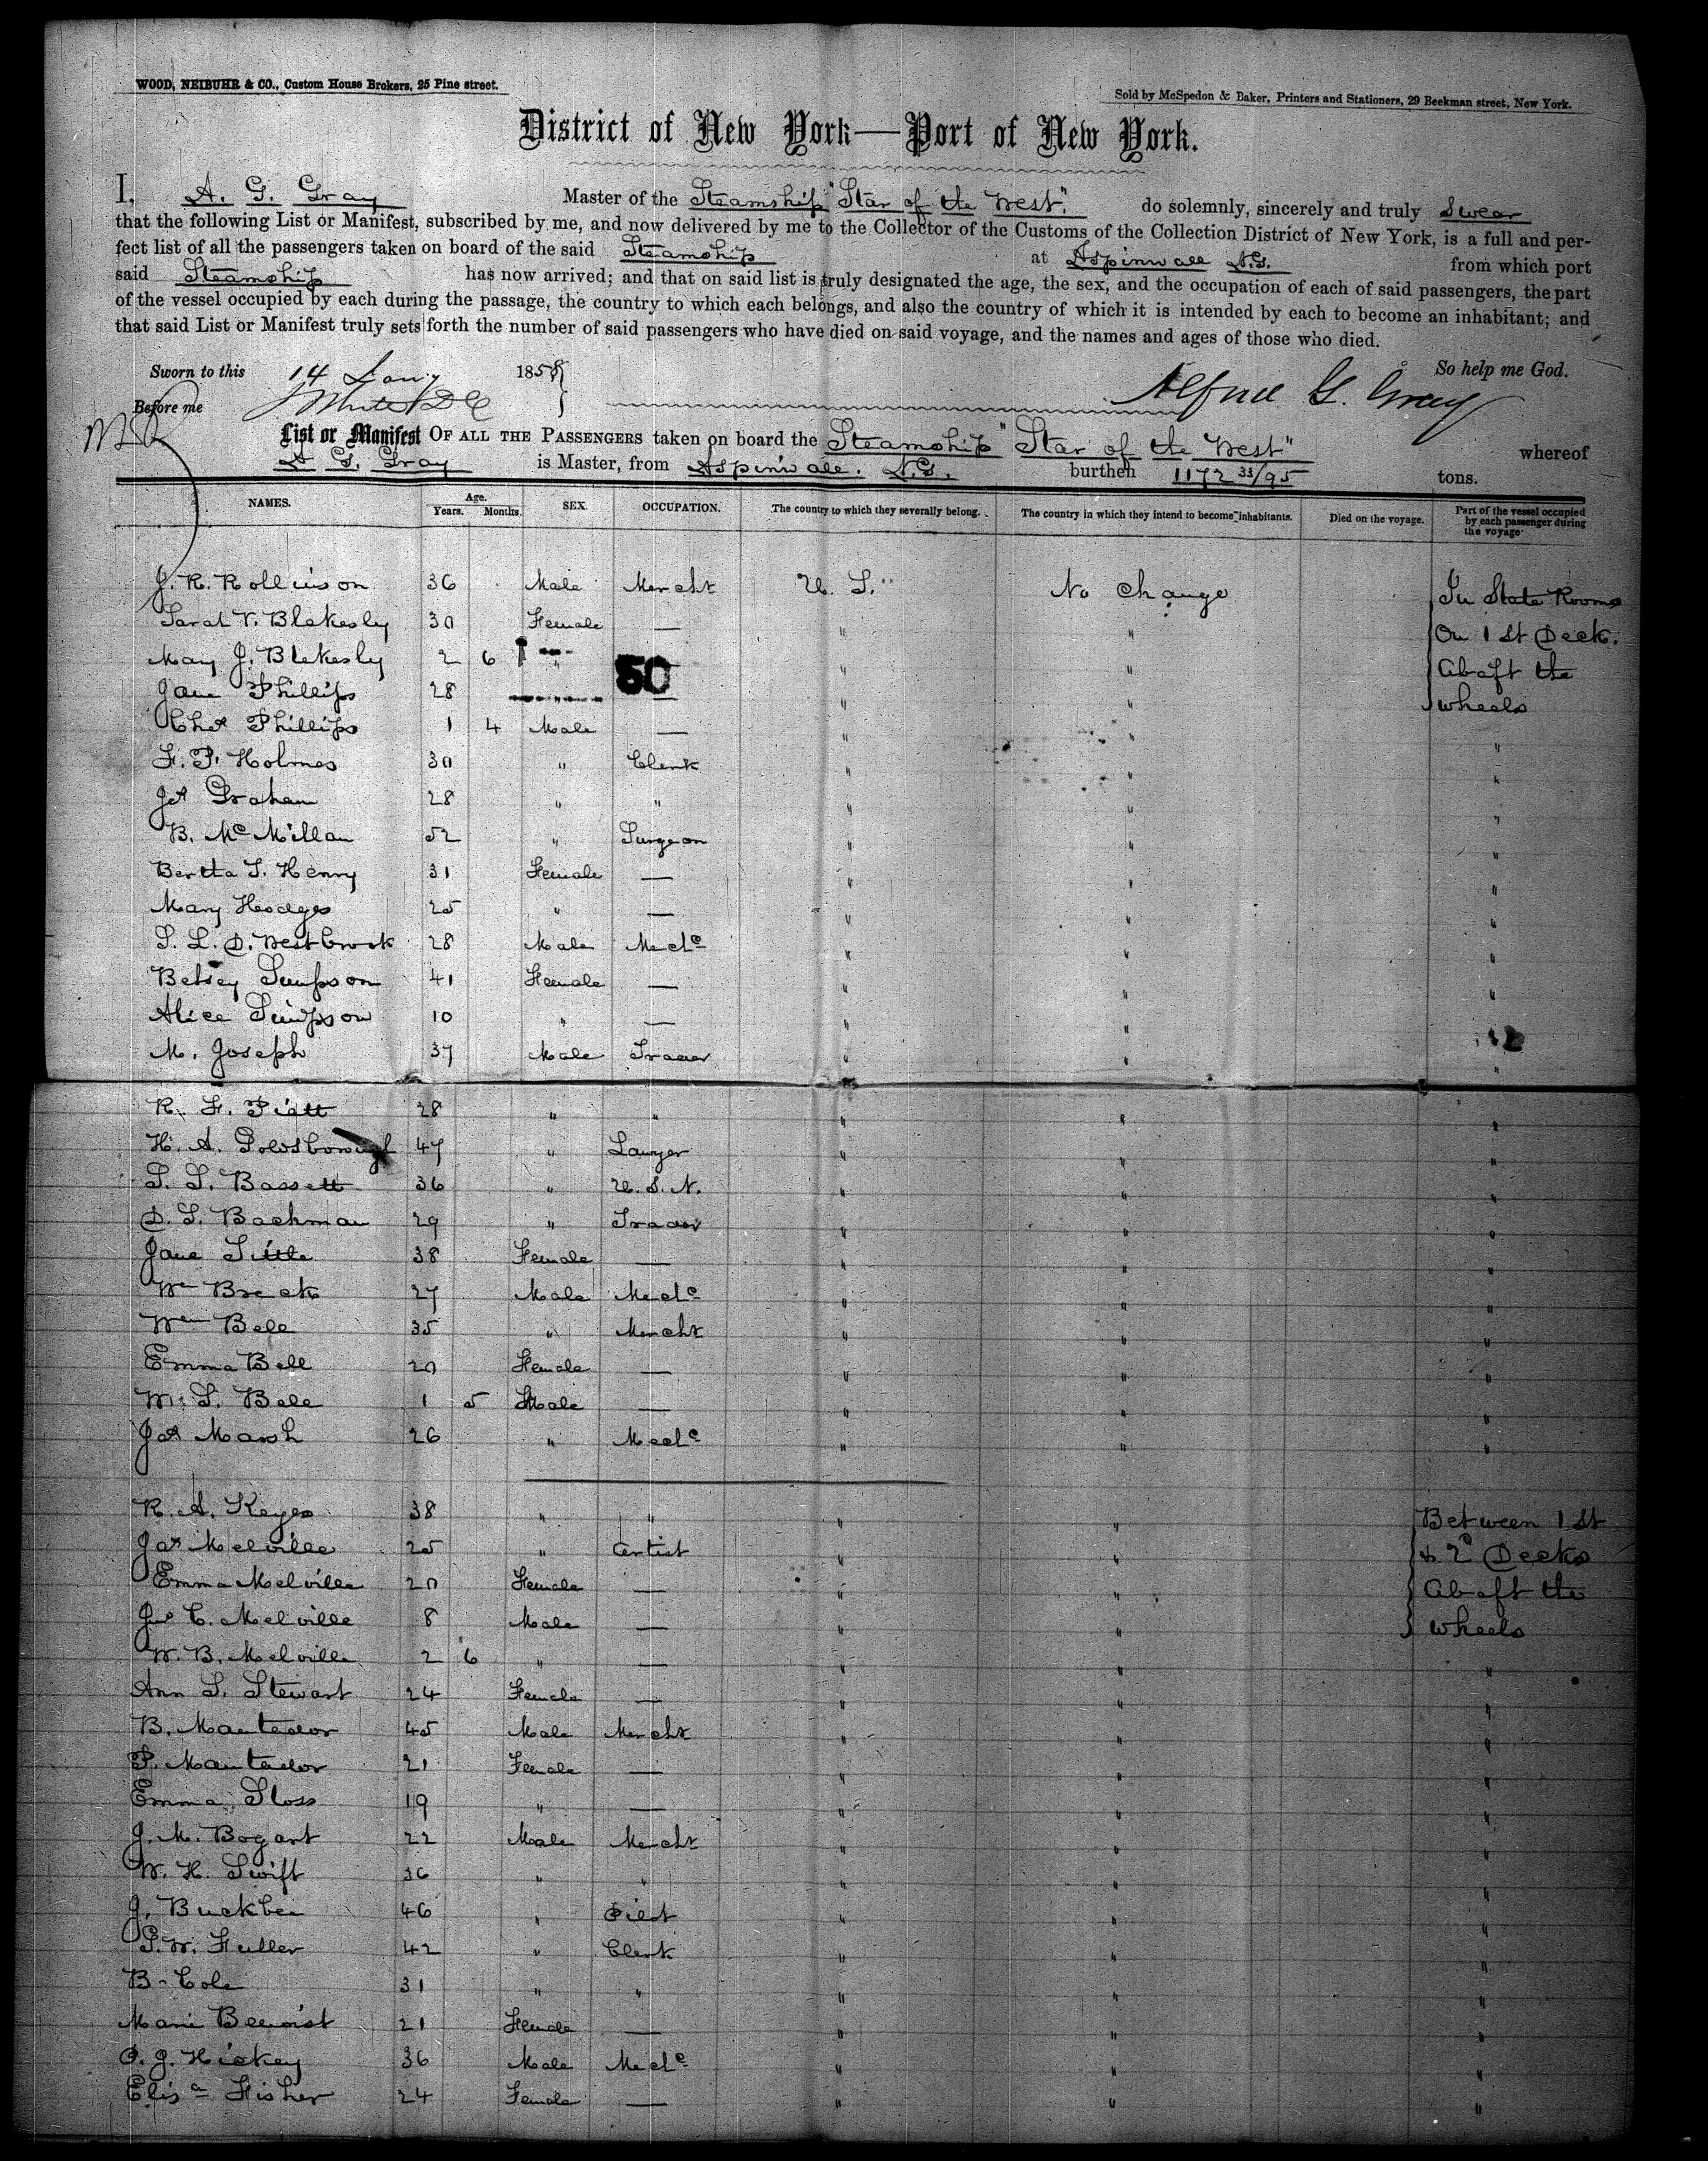 WOOD, NEIBUHR & CO., Custom House Brokers, 25 Pine street.
Sold by McSpedon & Baker, Printers and Stationers, 29 Beekman street, New York.
District of New York—Port of New York.
I, A. G. Gray Master of the Steamship "Star of the West." do solemnly, sincerely and truly Swear
that the following List or Manifest, subscribed by me, and now delivered by me to the Collector of the Customs of the Collection District of New York, is a full and per-
fect list of all the passengers taken on board of the said Steamship at Aspinwall N.G. from which port
said Steamship has now arrived; and that on said list is truly designated the age, the sex, and the occupation of each of said passengers, the part
of the vessel occupied by each during the passage, the country to which each belongs, and also the country of which it is intended by each to become an inhabitant; and
that said List or Manifest truly sets forth the number of said passengers who have died on said voyage, and the names and ages of those who died.
Sworn to this 14 Jany 1858 So help me God.
Before me Alfred G. Gray
List or Manifest OF ALL THE PASSENGERS taken on board the Steamship "Star of the West" whereof
A G. Gray is Master, from Aspinwall. N.G. burthen 1172 33/95 tons.
NAMES. Age. Years. Months. SEX. OCCUPATION. The country to which they severally belong. The country in which they intend to become inhabitants. Died on the voyage. Part of the vessel occupied by each passenger during the voyage
J. R. Rollinson 36 Male Mercht U. S. No Change In State Rooms
Sarah V. Blakesly 30 Female — " " On 1st Deck
Mary J. Blakesly 2 6 " " " Abaft the
50
Jane Phillips 28 — " " wheels
Chas Phillips 1 4 Male — " " "
F. P. Holmes 30 " Clerk " " "
Jas Graham 28 " " " " "
B. McMillan 52 " Surgeon " " "
Bertha S. Henry 31 Female — " " "
Mary Hodges 25 " — " " "
S. L. D. Westbrook 28 Male Mechc " " "
Betsey Simpson 41 Female — " " "
Alice Simpson 10 " — " "
M. Joseph 37 Male Trader " " "
R. F. Piatt 28 " " " " "
H. A. Goldsborough 47 " Lawyer " " "
S. S. Bassett 36 " U. S. N. " " "
D. S. Bachman 29 " Trader " " "
Jane Little 38 Female — " " "
Wm Break 27 Male Mechc " " "
Wm Bell 35 " Mercht " " "
Emma Bell 20 Female — " " "
W. S. Bell 1 5 Male — " " "
Jas Marsh 26 " Mechc " " "
R. A. Keyes 38 " " " " Between 1st
Jas Melville 25 " Artist " " & 2d Decks
Emma Melville 20 Female — " " Abaft the
Jno C. Melville 8 Male — " " wheels
W. B. Melville 2 6 " — " " "
Ann S. Stewart 24 Female — " " "
B. Mantador 45 Male Mercht " " "
P. Mantador 21 Female — " " "
Emma Sloss 19 " — " " "
J. M. Bogart 22 Male Mercht " " "
W. H. Swift 36 " " " " "
J. Buckbee 46 " Pilot " " "
G. W. Fuller 42 " Clerk " " "
B. Cole 31 " " " " "
Marie Benoist 21 Female — " " "
P. J. Hickey 36 Male Mechc " " "
Elisa Fisher 24 Female — " " "